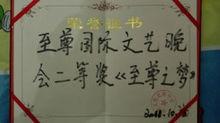 荣誉证书
至尊国际文艺晚
会二等奖《至尊之梦》